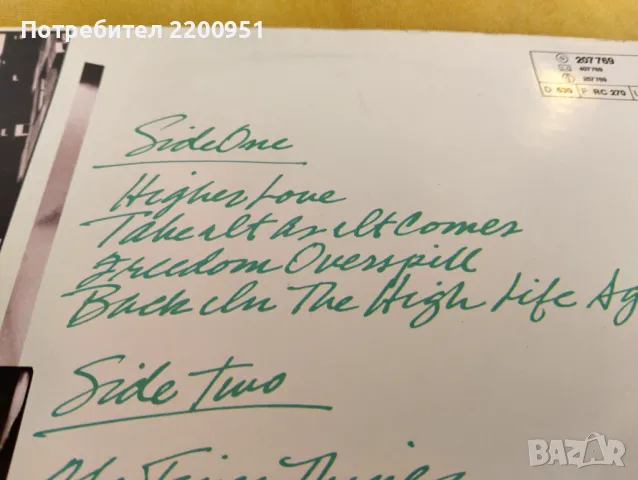 Потребител 2200951
207 769
407 769
257 769
D 630 F RC 270
Side One
Higher Love
Take It As It Comes
Freedom Overspill
Back In The High Life Ag
Side Two
Things
BAZAR
bg